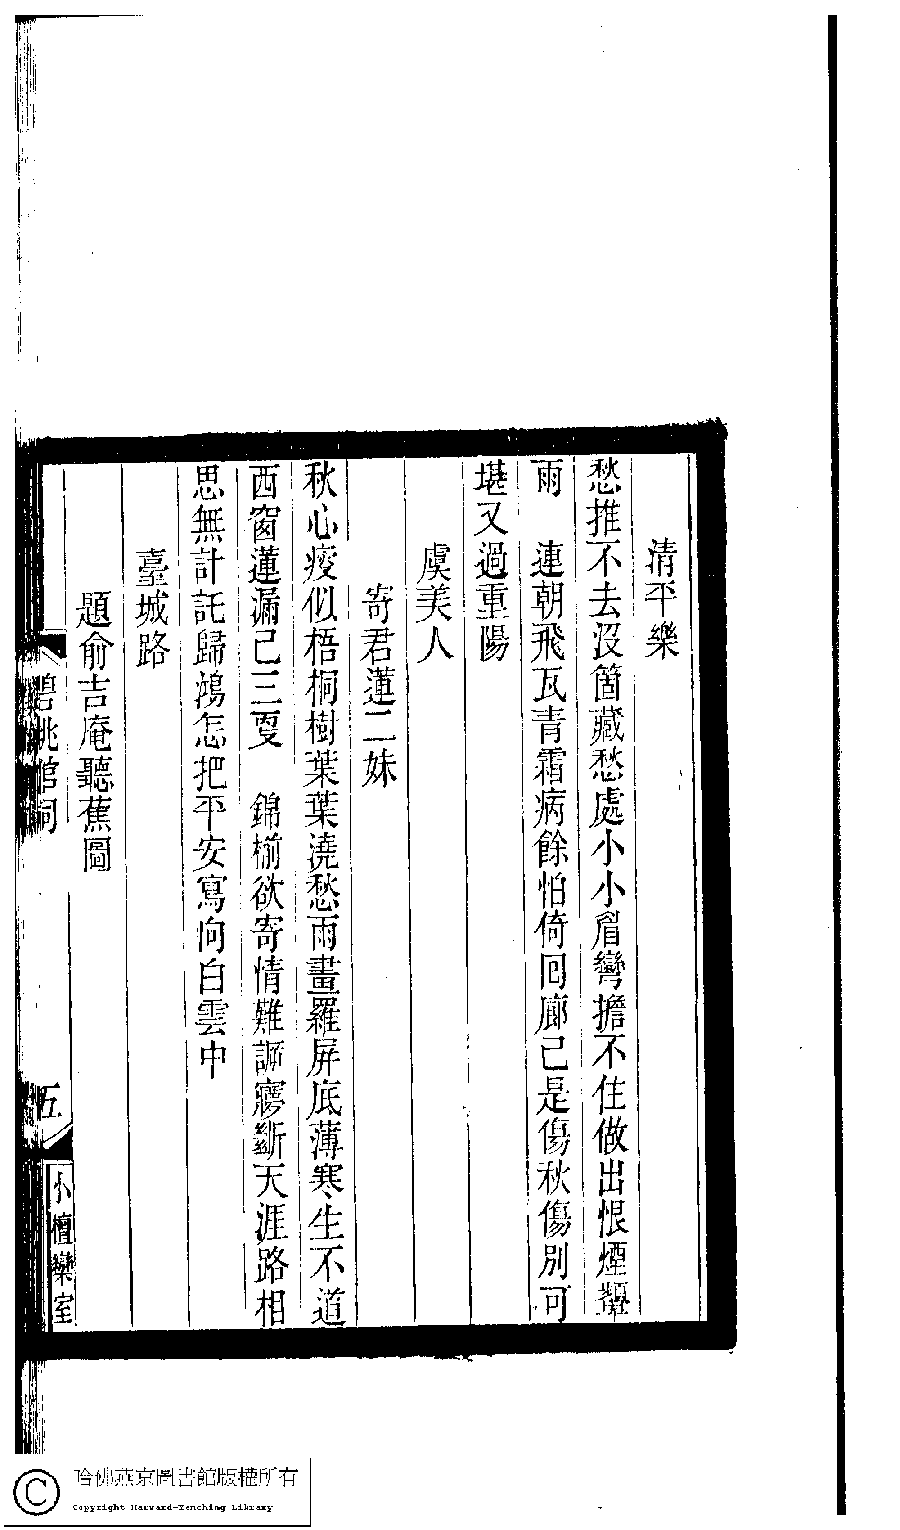 清平樂
愁推不去沒箇藏愁處小小眉彎擔不住做出恨煙顰
雨　連朝飛瓦青霜病餘怕倚回廊已是傷秋傷別可
堪又過重陽
虞美人
寄君蓮二妹
秋心瘦似梧桐樹葉葉澆愁雨畫羅屏底薄寒生不道
西窗蓮漏已三更　錦櫛欲寄情難訴寢斷天涯路相
思無計託歸鴻怎把平安寫向白雲中
臺城路
題俞吉庵聽蕉圖
碧桃館詞
五
小檀欒室
哈佛燕京圖書館版權所有
Copyright Harvard-Yenching Library